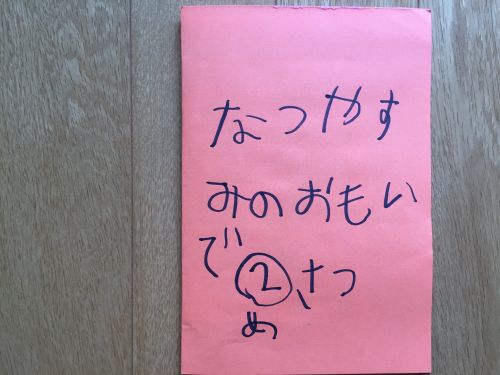 なつやす
みのおもい
で②さつ
め